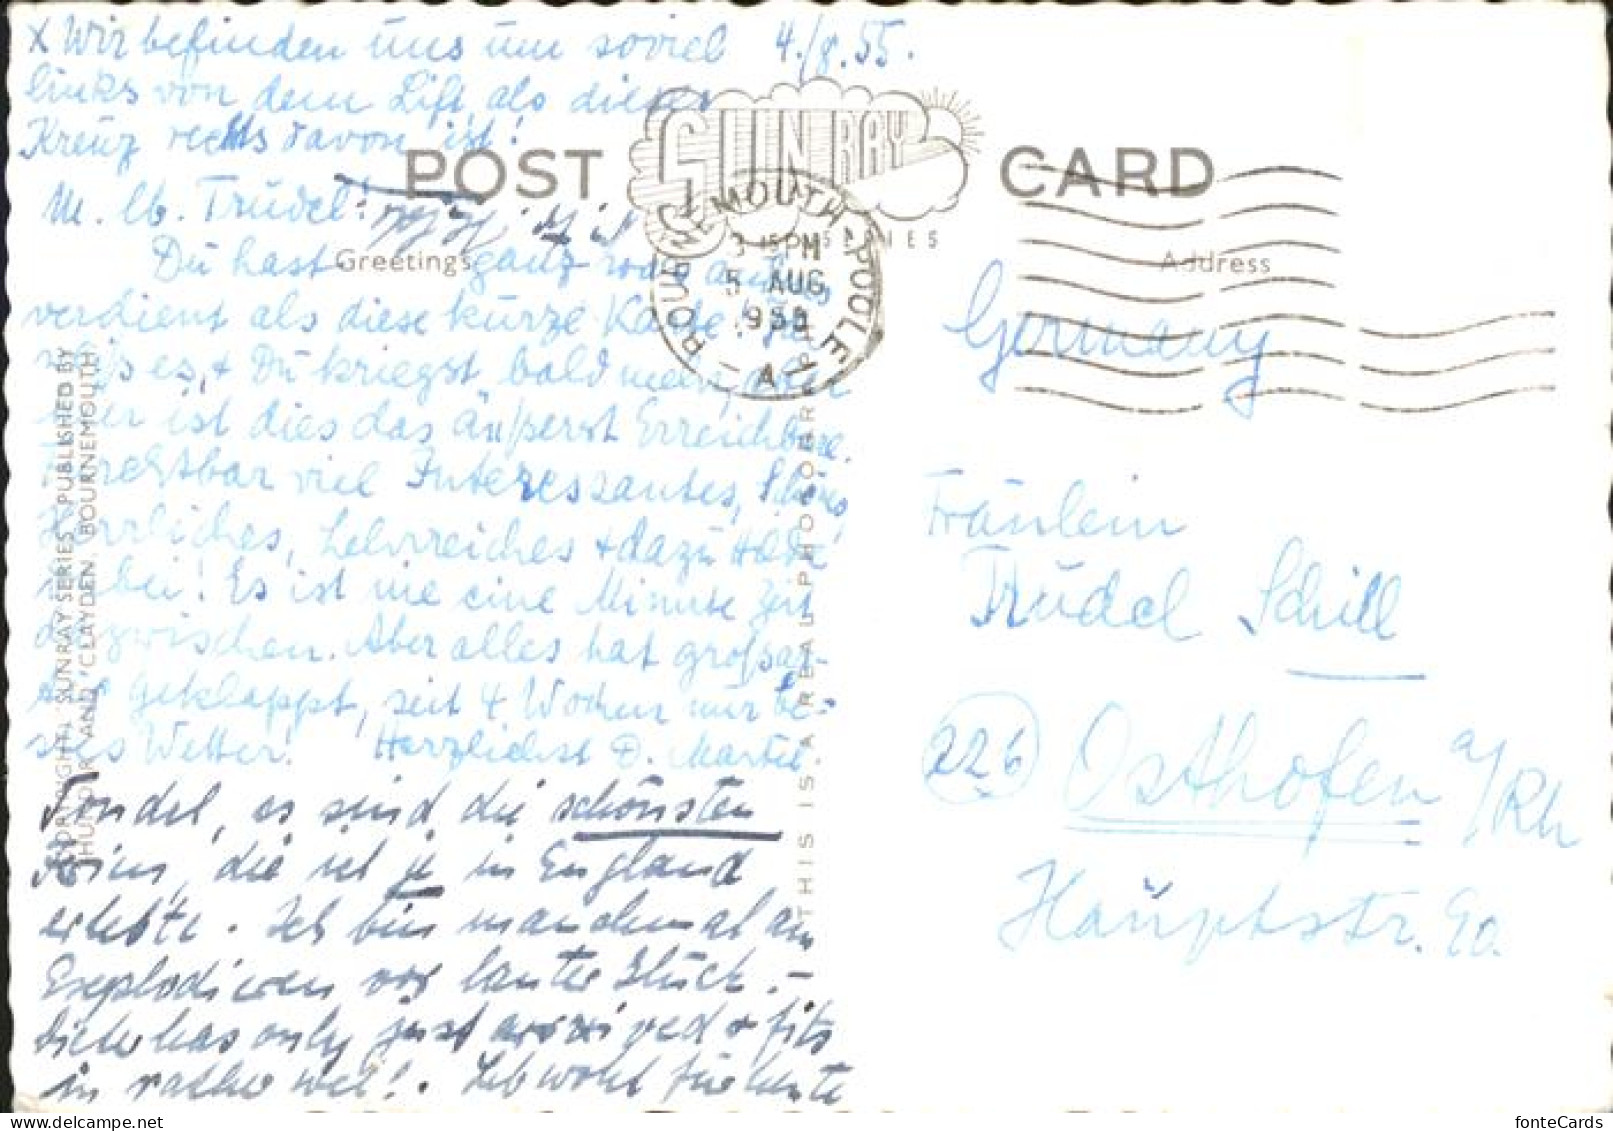 x Wir befinden uns um soviel 4./8.55.
links von dem Lift, als dieses
Kreuz rechts davon ist!
POST CARD
SUNRAY
SERIES
M. lb. Trudel!
Greetings
Address
BOURNEMOUTH-POOLE
PM
5 AUG
1955
A
Du hast ganz
verdient als diese kurze Karte.
es, + Du kriegst bald mehr, aber
hier ist dies das äußerst Erreichbare.
Furchtbar viel Interessantes, Schönes,
Herrliches, Lehrreiches + dazu
dabei! Es ist nie eine Minute Zeit
dazwischen. Aber alles hat großar-
tig geklappt, seit 4 Wochen nur be-
stes Wetter! Herzlichst D. Martel.
es sind die schönsten
die ich je in England
erlebte. Ich bin manchmal am
Explodieren vor lauter Glück. -
Dieter has only just arrived + fits
in rather well! Leb wohl für heute
COPYRIGHT, SUNRAY SERIES, PUBLISHED BY
AND CLAYDEN, BOURNEMOUTH
THIS IS A REAL PHOTOGRAPH
Germany
Fräulein
Trudel Schill
(22b) Osthofen a/Rh
Hauptstr. 90.
fonteCards